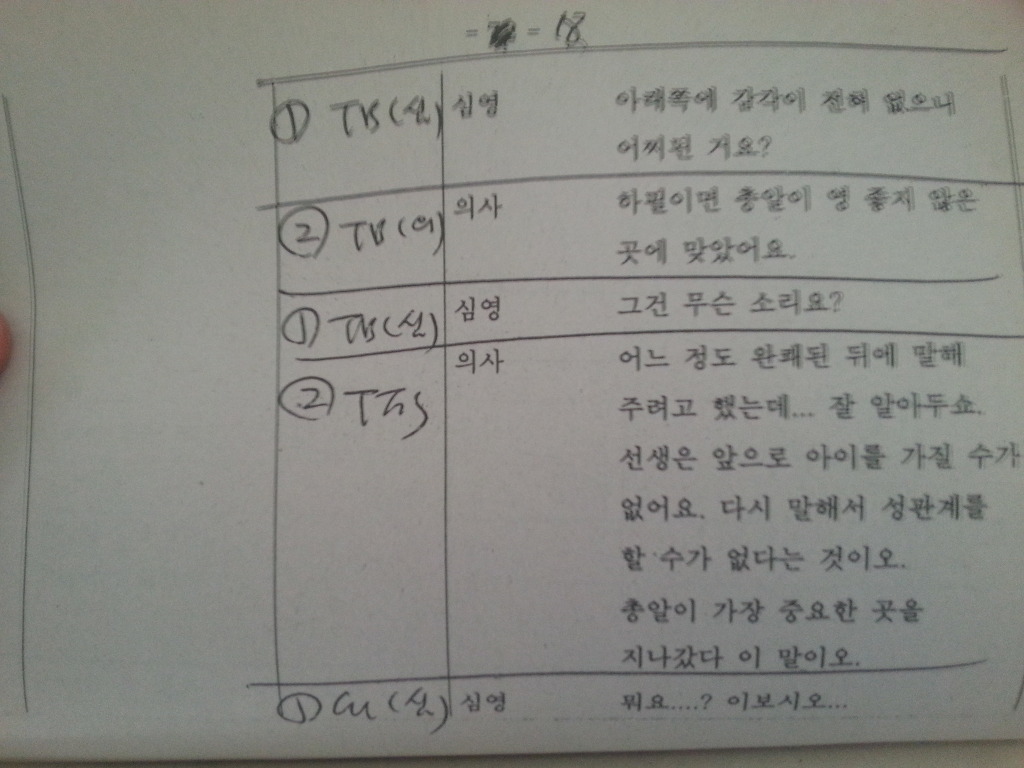 = = 18
① TB(심) 심영 아래쪽에 감각이 전혀 없으니
어찌된 거요?
② TB(의) 의사 하필이면 총알이 영 좋지 않은
곳에 맞았어요.
① TB(심) 심영 그건 무슨 소리요?
의사 어느 정도 완쾌된 뒤에 말해
② 주려고 했는데... 잘 알아두쇼.
선생은 앞으로 아이를 가질 수가
없어요. 다시 말해서 성관계를
할 수가 없다는 것이오.
총알이 가장 중요한 곳을
지나갔다 이 말이오.
① CU(심) 심영 뭐요....? 이보시오...